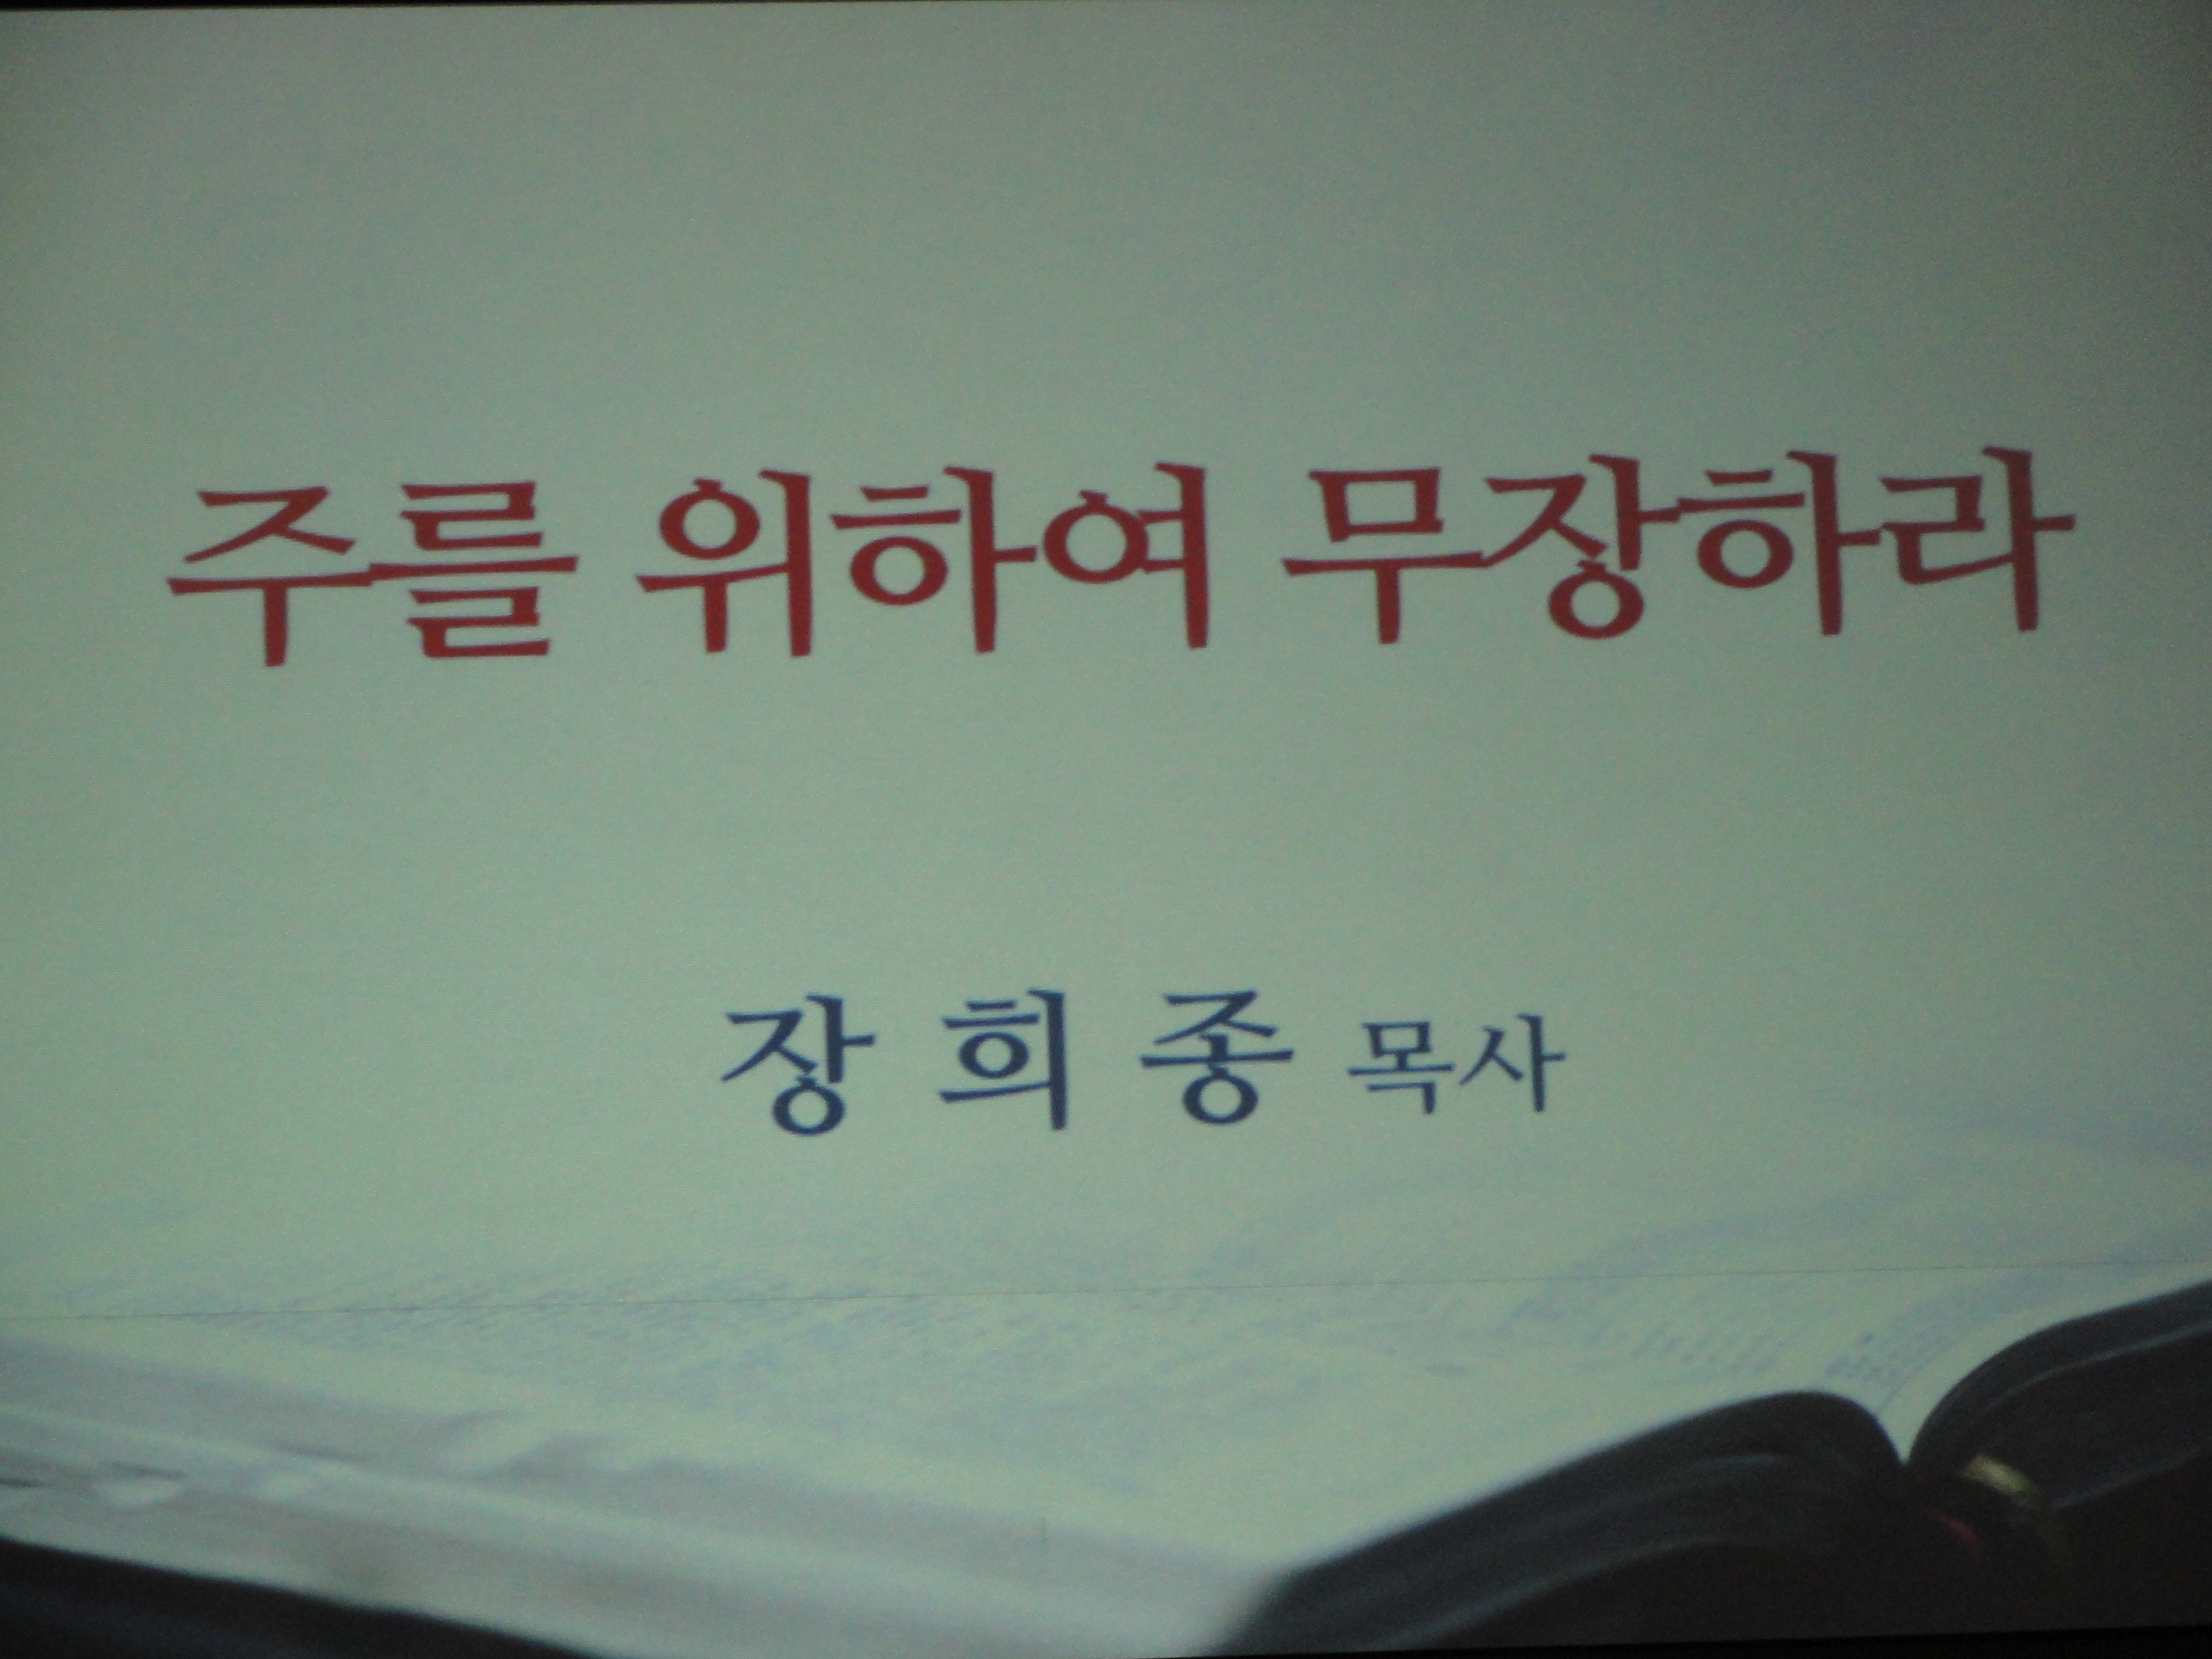 주를 위하여 무장하라
장 희 종 목사